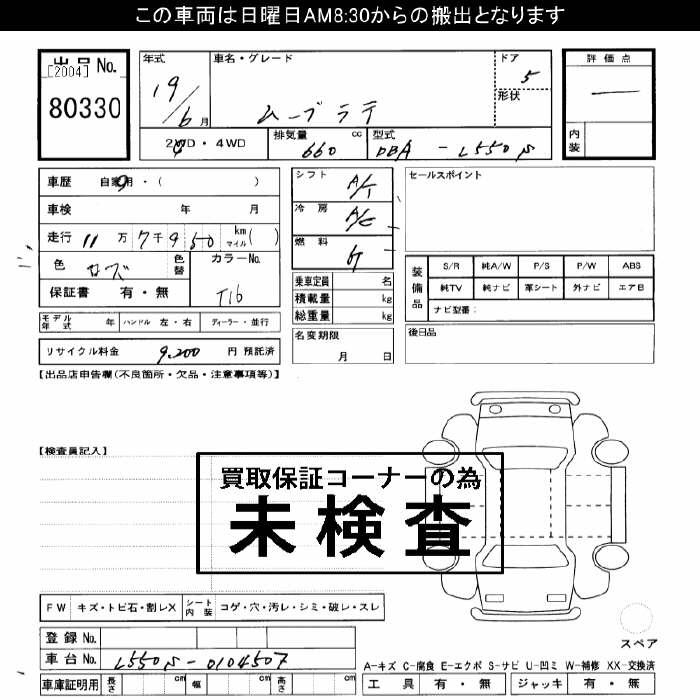 この車両は日曜日AM8:30からの搬出となります
出品No.
[2004]
80330
年式
19/6月
車名・グレード
ムーブラテ
ドア
5
形状
評価点
内装
2WD・4WD
排気量 cc
660
型式
DBA - L550S
車歴 自家用・( )
車検 年 月
走行 11万7千9 50 km マイル( )
色
色替
カラーNo.
T16
保証書 有・無
モデル年式 年 ハンドル 左・右 ディーラー・並行
リサイクル料金 9,200 円 預託済
シフト
A/T
冷房
A/C
燃料
乗車定員 名
積載量 kg
総重量 kg
名変期限
月 日
セールスポイント
装備品
S/R 純A/W P/S P/W ABS
純TV 純ナビ 革シート 外ナビ エアB
ナビ型番:
後日品
【出品店申告欄(不良箇所・欠品・注意事項等)】
【検査員記入】
買取保証コーナーの為
未検査
FW キズ・トビ石・割レX シート内装 コゲ・穴・汚レ・シミ・破レ・スレ
登録No.
車台No. L550S-0104507
車庫証明用 長さ cm 幅 cm 高さ cm
スペア
A-キズ C-腐食 E-エクボ S-サビ U-凹ミ W-補修 XX-交換済
工具 有・無 ジャッキ 有・無